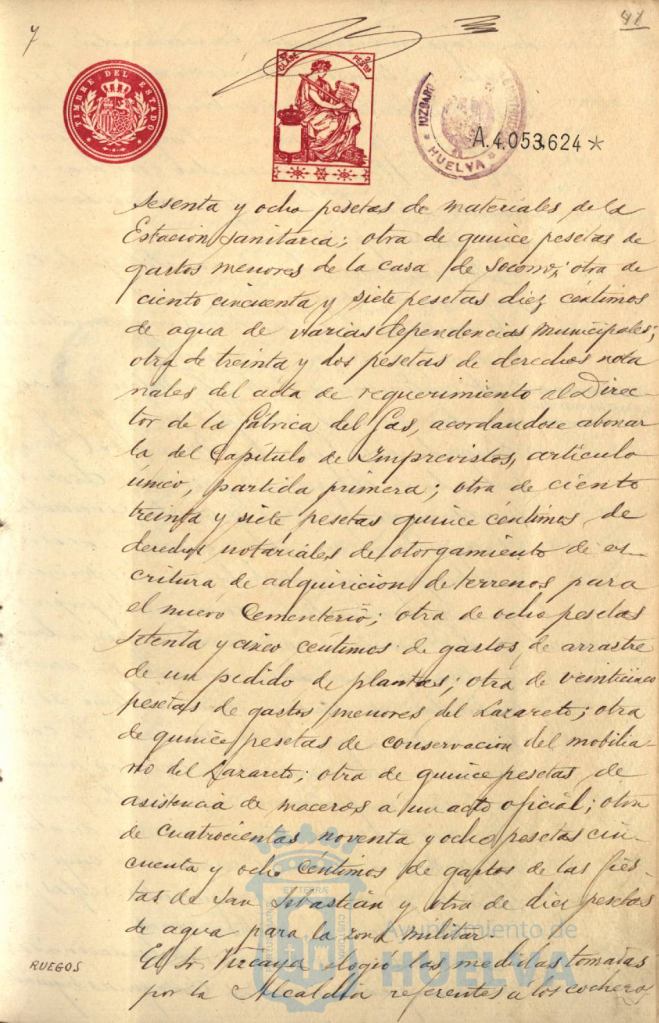 7
41
TIMBRE DEL ESTADO
CLASE
PESETAS
JUZGADO
HUELVA
A.4.053.624*
sesenta y ocho pesetas de materiales de la
Estacion sanitaria; otra de quince pesetas de
gastos menores de la casa de socorro; otra de
ciento cincuenta y siete pesetas diez céntimos
de agua de varias dependencias municipales;
otra de treinta y dos pesetas de derechos nota
riales del acta de requerimiento al Direc-
tor de la fábrica del Gas, acordandose abonar
la del Capítulo de Imprevistos, artículo
único, partida primera; otra de ciento
treinta y siete pesetas quince céntimos de
derechos notariales de otorgamiento de es-
critura de adquiricion de terrenos para
el nuevo Cementerio; otra de ocho pesetas
setenta y cinco céntimos de gastos de arrastre
de un pedido de plantas; otra de veinticinco
pesetas de gastos menores del Lazareto; otra
de quince pesetas de conservacion del mobilia-
rio del Lazareto; otra de quince pesetas de
asistencia de maceros á un acto oficial; otra
de cuatrocientas noventa y ocho pesetas cin-
cuenta y ocho céntimos de gastos de las fies-
tas de San Sebastián y otra de diez pesetas
de agua para la zona militar.
RUEGOS
El Sr Vizcaya elogio las medidas tomadas
por la Alcaldía referentes a los cocheros
Ayuntamiento de
HUELVA